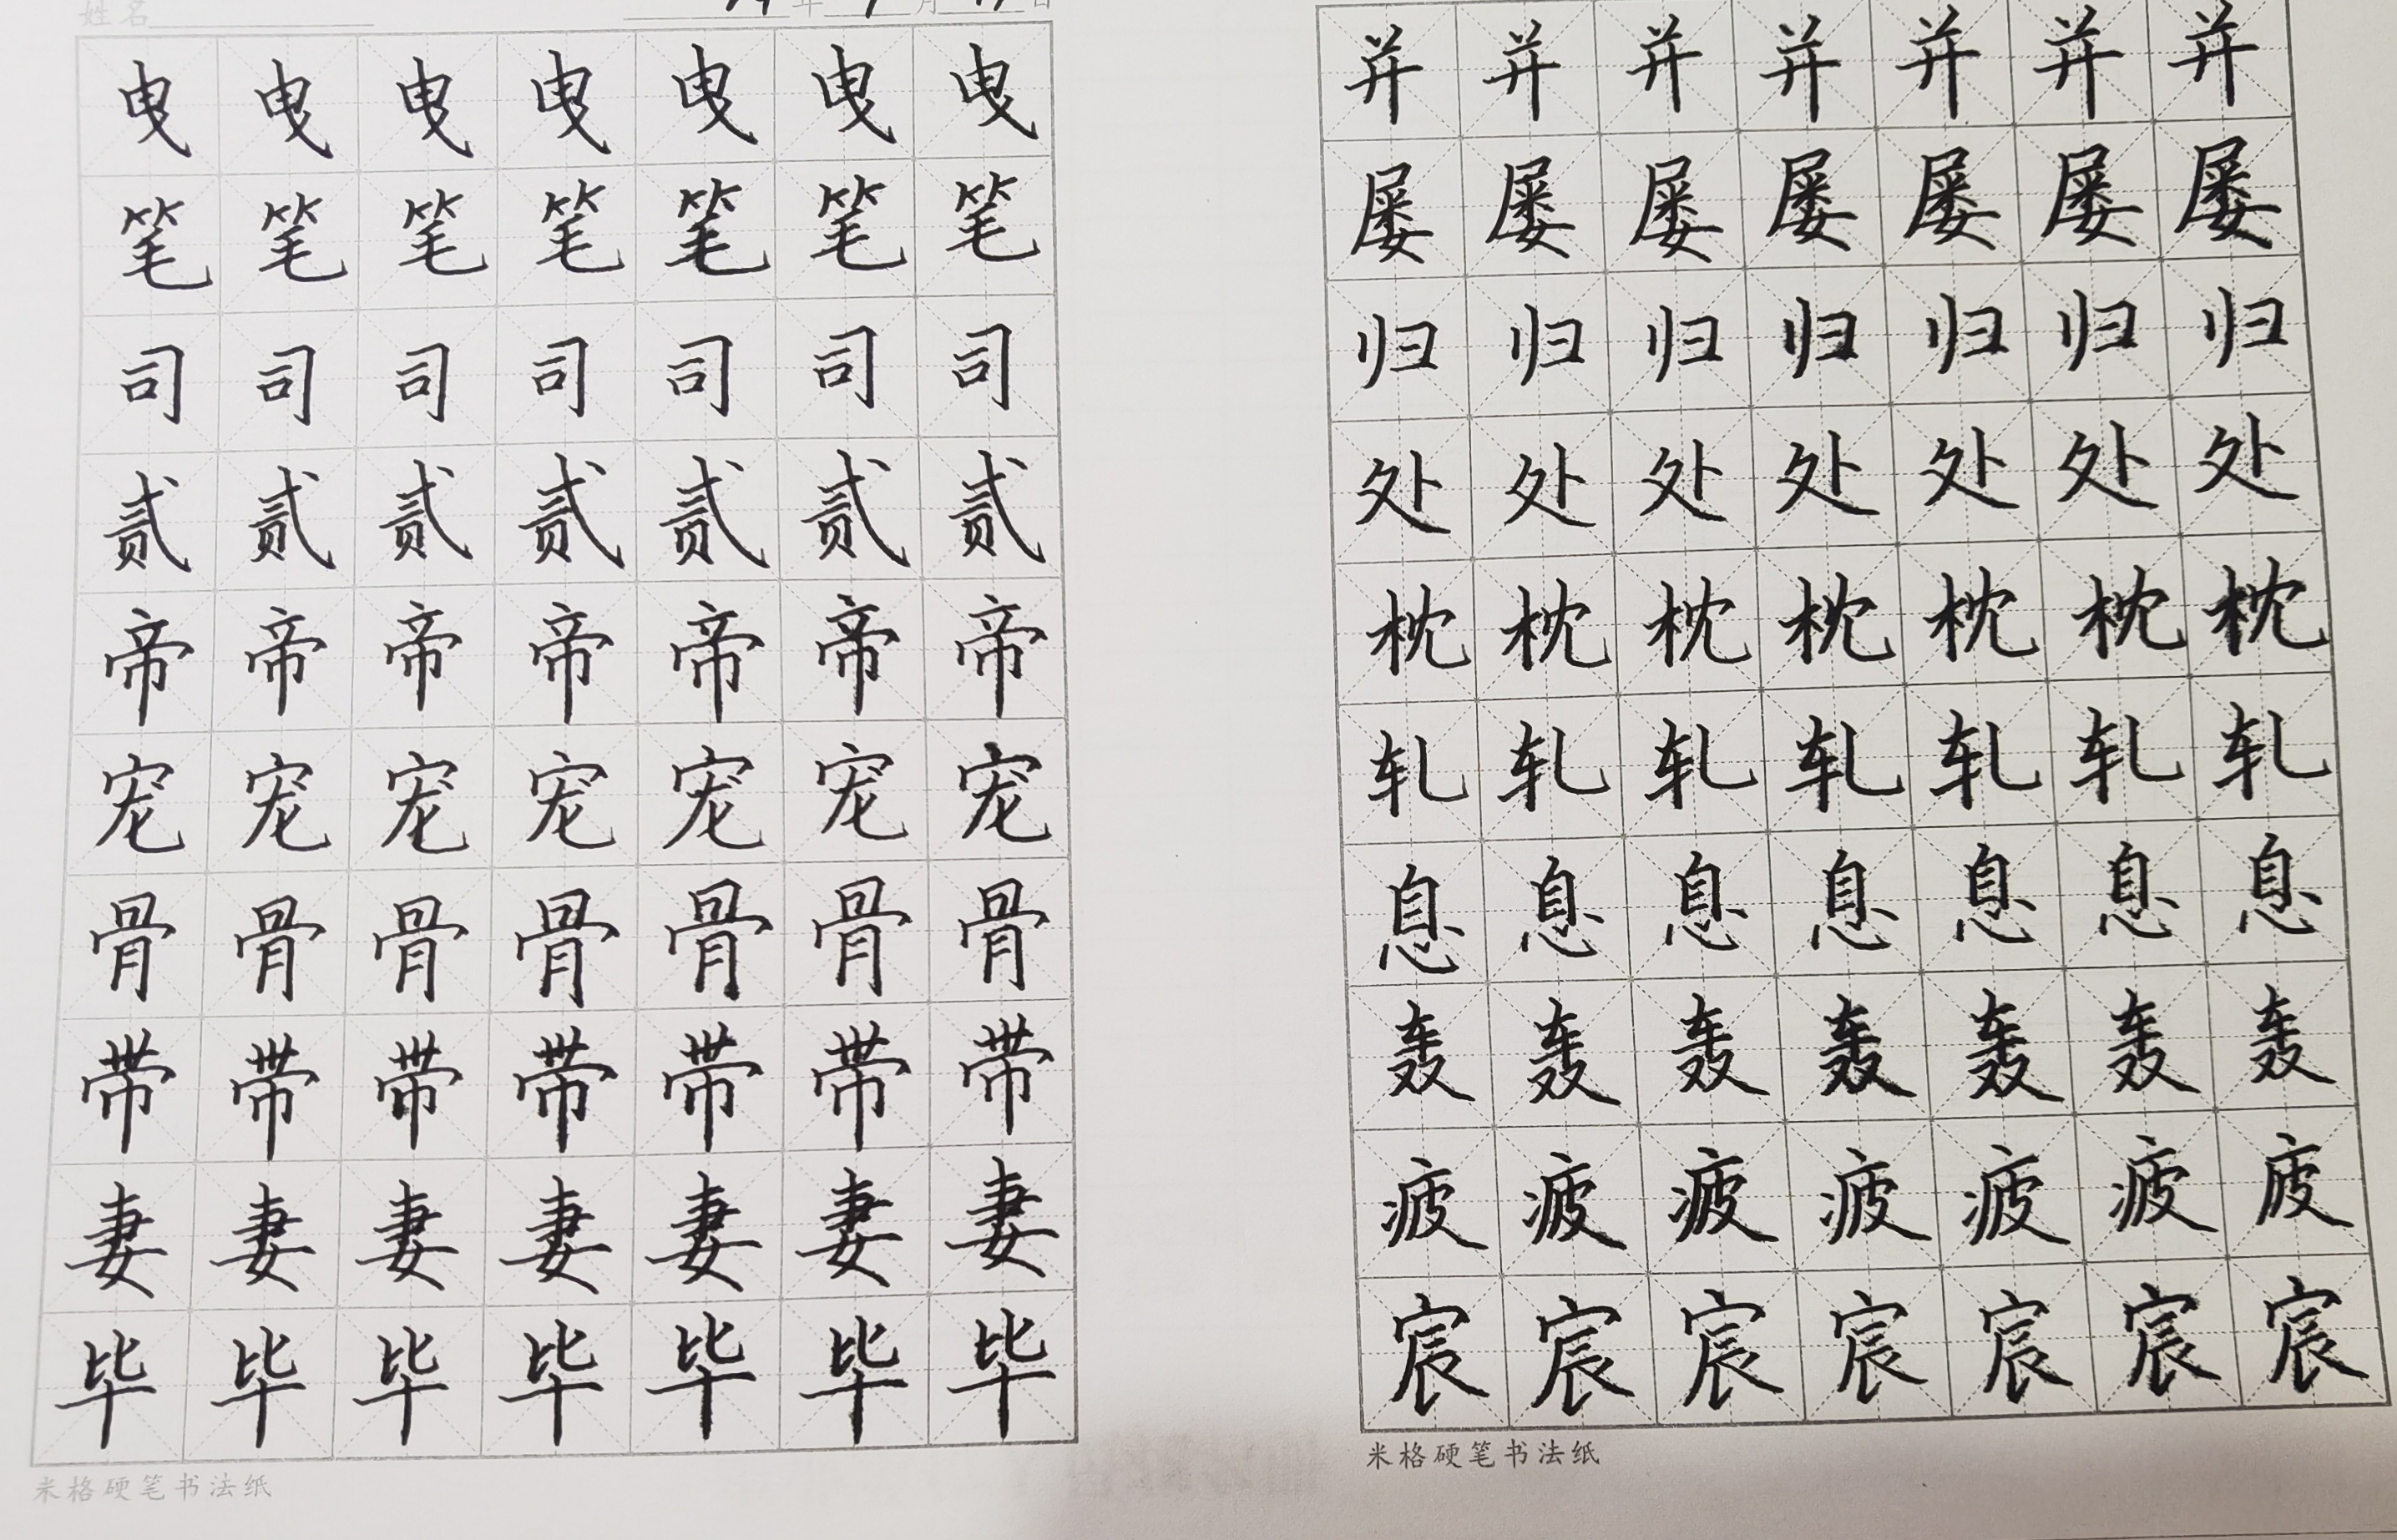 姓名 年 月 日
曳曳曳曳曳曳曳
笔笔笔笔笔笔笔
司司司司司司司
贰贰贰贰贰贰贰
帝帝帝帝帝帝帝
宠宠宠宠宠宠宠
骨骨骨骨骨骨骨
带带带带带带带
妻妻妻妻妻妻妻
毕毕毕毕毕毕毕
米格硬笔书法纸
并并并并并并并
屡屡屡屡屡屡屡
归归归归归归归
处处处处处处处
枕枕枕枕枕枕枕
轧轧轧轧轧轧轧
息息息息息息息
轰轰轰轰轰轰轰
疲疲疲疲疲疲
宸宸宸宸宸宸宸
米格硬笔书法纸